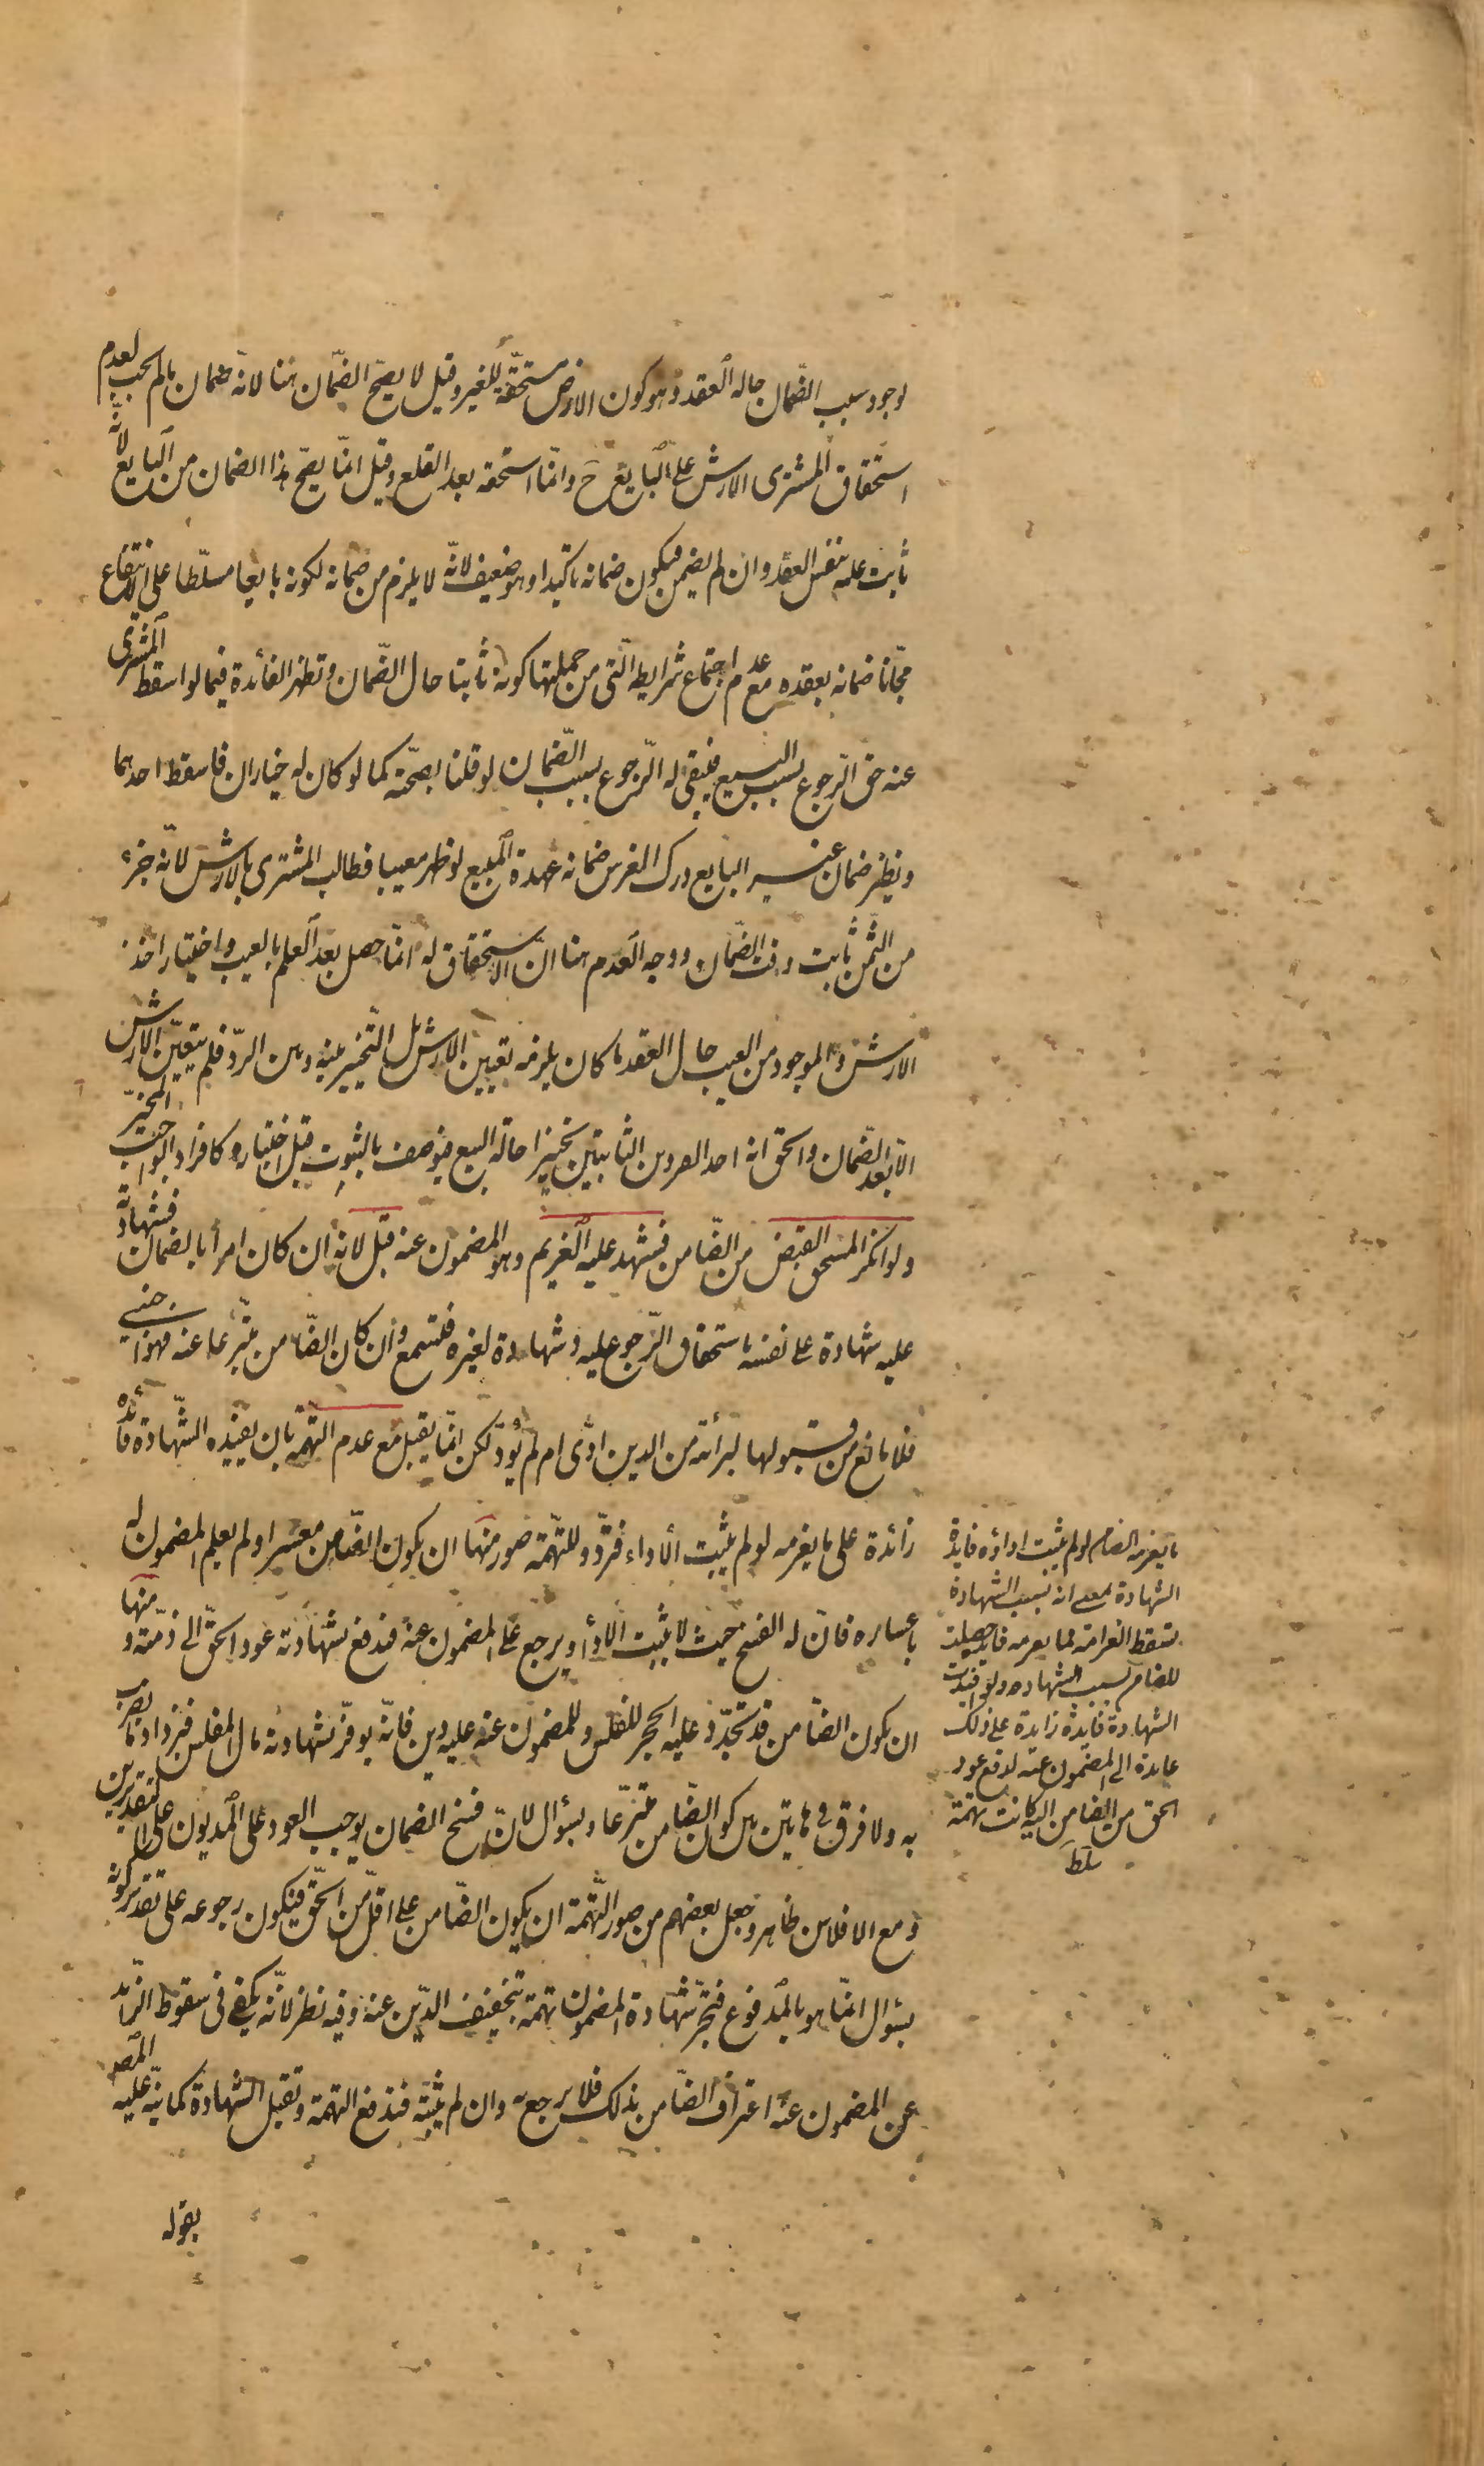 لوجود سبب الضّمان حالة العقد وهو كون الارض مستحقّة للغير وقيل لا يصحّ الضّمان هنا لانّه ضمان ما لم يجب لعدم
استحقاق المشترى الارش على البايع ح وانّما استحقه بعد القلع وقيل انّما يصحّ هذا الضمان من البايع لانّه
ثابت عليه بنفس العقد وان لم يضمن فيكون ضمانه تاكيدا وهو ضعيف لانّه لا يلزم من ضمانه لكونه بايعا مسلّطا على الانتفاع
مجّانا ضمانه بعقده مع عدم اجتماع شرايطه الّتى من جملتها كونه ثابتا حال الضّمان وتظهر الفائدة فيما لو اسقط المشترى
عنه حق الرّجوع بسبب البيع فيبقى له الرّجوع بسبب الضّمان لو قلنا بصحّته كما لو كان له خياران فاسقط احدهما
ونظير ضمان غير البايع درك الغرس ضمانه عهدة المبيع لو ظهر معيبا فطالب المشترى بالارش لانّه جزء
من الثّمن ثابت وقت الضّمان ووجه العدم هنا انّ الاستحقاق له انّما حصل بعد العلم بالعيب واختيار اخذ
الارش والموجود من العيب حال العقد ما كان يلزمه تعيين الارش بل التّخيير بينه وبين الردّ فلم يتعيّن الارش
الّا بعد الضّمان والحق انه احد الفردين الثابتين تخييرا حالة البيع فيوصف بالثبوت قبل اختياره كافراد الواجب المخيّر
ولو انكر المستحق القبض من الضّامن فشهد عليه الغريم وهو المضمون عنه قبل لانه ان كان امرا بالضمان فشهادته
عليه شهادة على نفسه باستحقاق الرّجوع عليه وشهادة لغيره فتسمع وان كان الضّامن متبرّعا عنه فهو اجنبي
فلا مانع من قبولها لبرأته من الدين ادّى ام لم يؤدّ لكن انّما يقبل مع عدم التّهمة بان يفيده الشّهادة فائدة
زائدة على ما يغرمه لو لم يثبت الاداء فتردّ وللتّهمة صور منها ان يكون الضّامن معسرا ولم يعلم المضمون له
باعساره فانّ له الفسخ حيث لا يثبت الاداء ويرجع على المضمون عنه فيدفع بشهادته عود الحقّ الى ذمّته ومنها
ان يكون الضّامن قد تجدّد عليه الحجر للفلس وللمضمون عنه عليه دين فانّه يوفّر بشهادته مال المفلس فيزداد ما يضرب
به ولا فرق فى هاتين بين كون الضّامن متبرّعا وبسؤال لانّ فسخ الضمان يوجب العود على المديون على التقديرين
ومع الافلاس ظاهر وجعل بعضهم من صور التّهمة ان يكون الضّامن على اقلّ من الحقّ فيكون رجوعه على تقدير كونه
بسؤال انّما هو بالمدفوع فتجرّ شهادة المضمون تهمة بتخفيف الدّين عنه وفيه نظر لانّه يكفى فى سقوط الزّائد
عن المضمون عنه اعتراف الضّامن بذلك فلا يرجع به وان لم يثبته فتدفع التهمة وتقبل الشهادة كما نبّه عليه المص
بقوله
ما يغرمه الضامن لو لم يثبت اداؤه فايدة
الشهادة بمعنى انه بسبب الشهادة
يسقط الغرامة لما يغرمه
للضامن بسبب الشهادة ولو افيدت
الشهادة فايدة زايدة على ذلك
عايدة الى المضمون عنه لدفع عود
الحق من الضامن اليه كانت تهمة
سلط